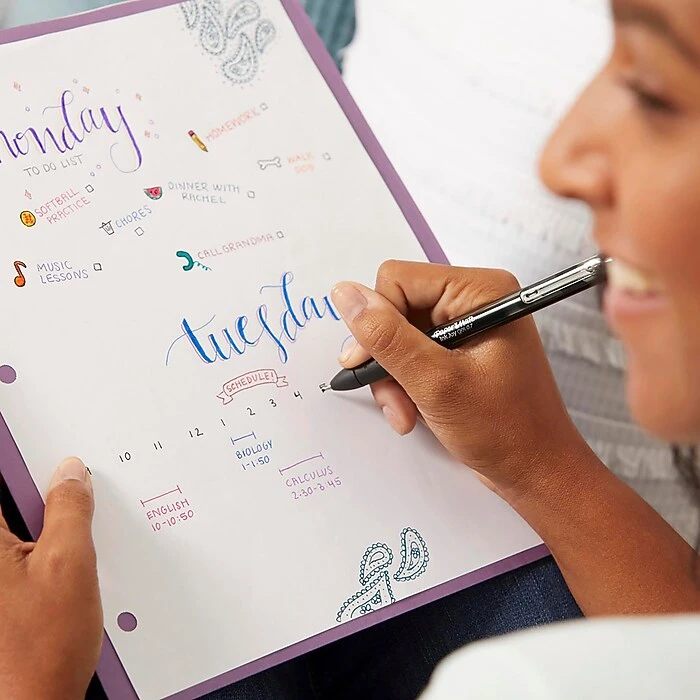 monday
TO DO LIST
HOMEWORK
WALK
DOG
SOFTBALL
PRACTICE
DINNER WITH
RACHEL
CHORES
CALL GRANDMA
MUSIC
LESSONS
tuesday
SCHEDULE!
10 11 12 1 2 3 4
BIOLOGY
1-1:50
CALCULUS
2:30-3:45
ENGLISH
10-10:50
Paper Mate
InkJoy